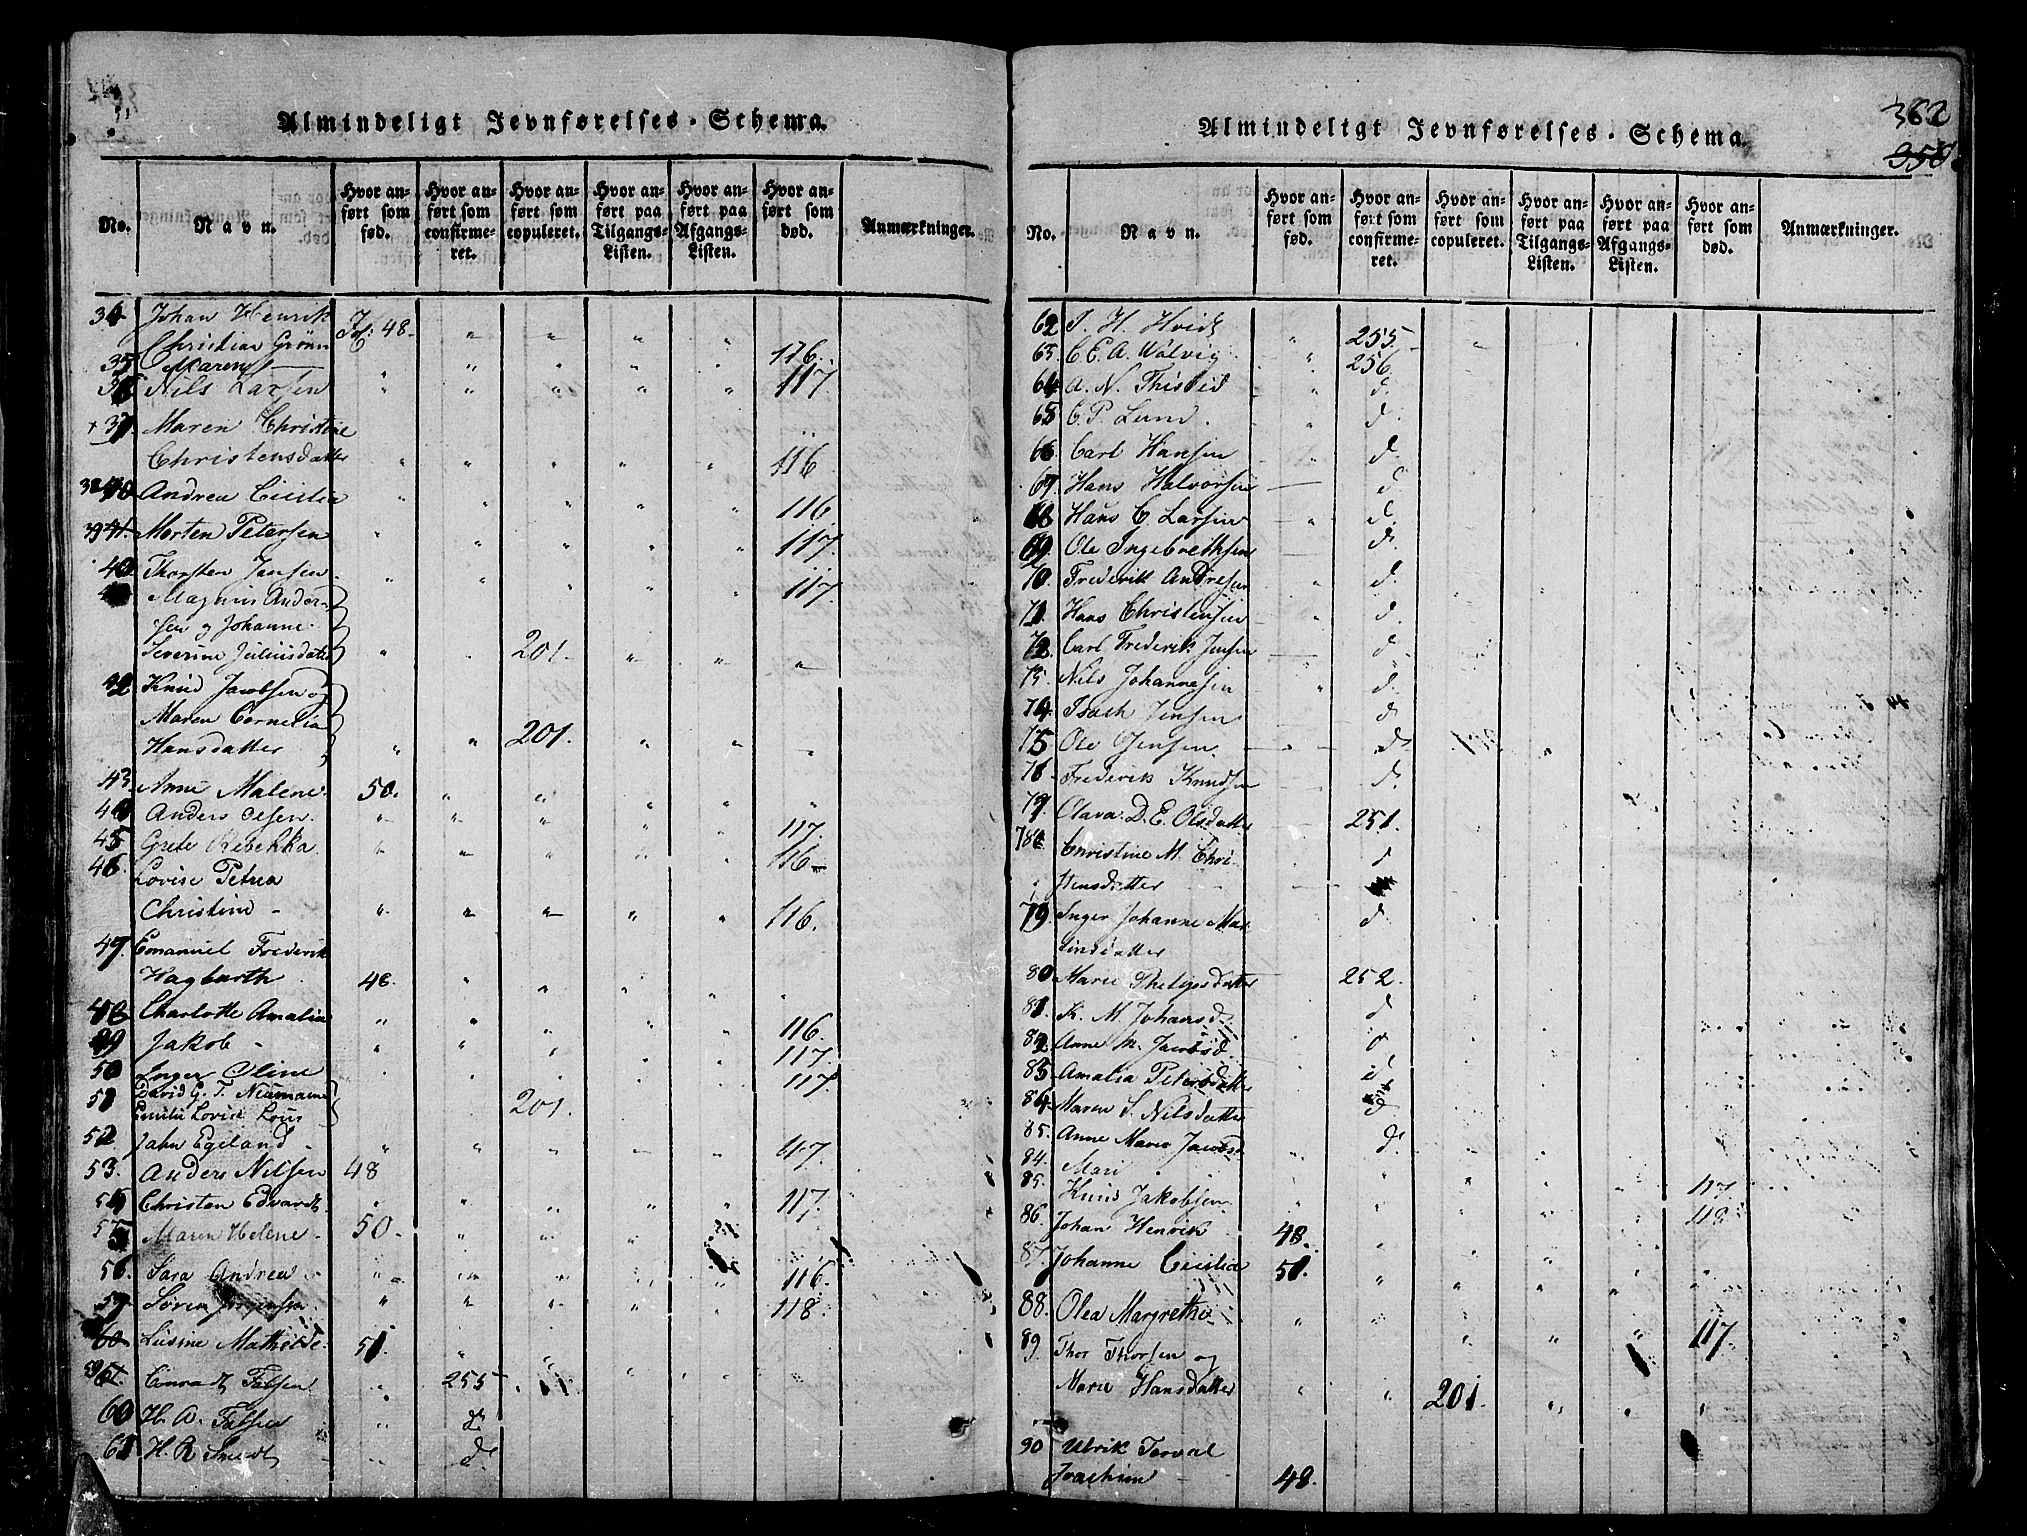 Almindeligt Jevnførelses-Schema.
No. Navn. Hvor anført som fød. Hvor anført som confirmeret. Hvor anført som copuleret. Hvor anført paa Tilgangs-Listen. Hvor anført paa Afgangs-Listen. Hvor anført som død. Anmærkninger.
34 Johan Henrik
Christian Grönn Fol: 48 " " " "
35 Maren " " " " " 116.
36 Nils Larsen " " " " " 117
+ 37 Maren Christine
Christensdatter " " " " " 116
38 Andrea Cicilia " " " " " 116
39 41. Morten Petersen " " " " " 117.
40 Thorsten Jansen " " " " " 117
Magnus Ander-
sen og Johanne
Severine Juliusdatter " 201. " " "
42 Knud Jacobsen og
Maren Cornelia
Hansdatter " " 201. " " "
43. Anne Malene. 50. " " " " "
44 Anders Olsen. " " " " " 117.
45 Grete Rebekka. " " " " " 116
46 Lovise Petrea
Christine " " " " " 116.
47. Emanuel Frederik
Hagbarth 48. " " " " "
48 Charlotte Amalia " " " " " 116.
49 Jakob " " " " " 117.
50 Inger Oline 117.
51 David G. T. Neumann
Emilie Lovise Lous 201.
52 Jahn Egeland " " " " " 117.
53. Anders Nilsen 48
54 Christen Edvardt. " " " " " 117.
55 Maren Helene 50. " " " "
56. Sara Andrea " " " " " 116.
57. Sören Jörgensen. " " " 118.
60 Lusine Mathilde. 51. " "
59 61. Conradt Falsen " 255
60 H. A. Falsen " d.
61 H. R. Smidt d.
362
358
Almindeligt Jevnførelses-Schema.
No. Navn. Hvor anført som fød. Hvor anført som confirmeret. Hvor anført som copuleret. Hvor anført paa Tilgangs-Listen. Hvor anført paa Afgangs-Listen. Hvor anført som død. Anmærkninger.
62 J. H. Hvidt " 255.
63. C. E. A. Wölvig " 256.
64 A. N. Thisted d.
65 C. P. Lund. d.
66 Carl Hansen d.
67 Hans Halvorsen d.
68 Hans C. Larsen " d.
69. Ole Ingebrethsen d.
70 Frederik Andresen " d.
71 Hans Christensen d.
72 Carl Frederik Jensen d.
73. Nils Johannesen " d.
74 Isach Jensen d.
75 Ole Jensen d.
76 Frederik Knudsen d.
77 Olava D. E. Olsdatter 251.
78 Christine M. Chri-
stensdatter d
79 Inger Johanne Mar-
tinsdatter d.
80 Marie Phelipsdatter 252.
81. K. M. Johansd. d
82 Anne M. Jacobsd. d
83 Amalia Petersdatter d
84. Maren S. Nilsdatter d
85. Anne Marie Jacobsd. d.
84. Mari " 117
85. Knud Jakobsen " 118
86. Johan Henrik 48. "
87. Johanne Cicilia 51. " " "
88. Olea Margrethe " 117
89. Thor Thorsen og
Marie Hansdatter " " 201. " " "
90 Ulrik Torval
Joachim 48.